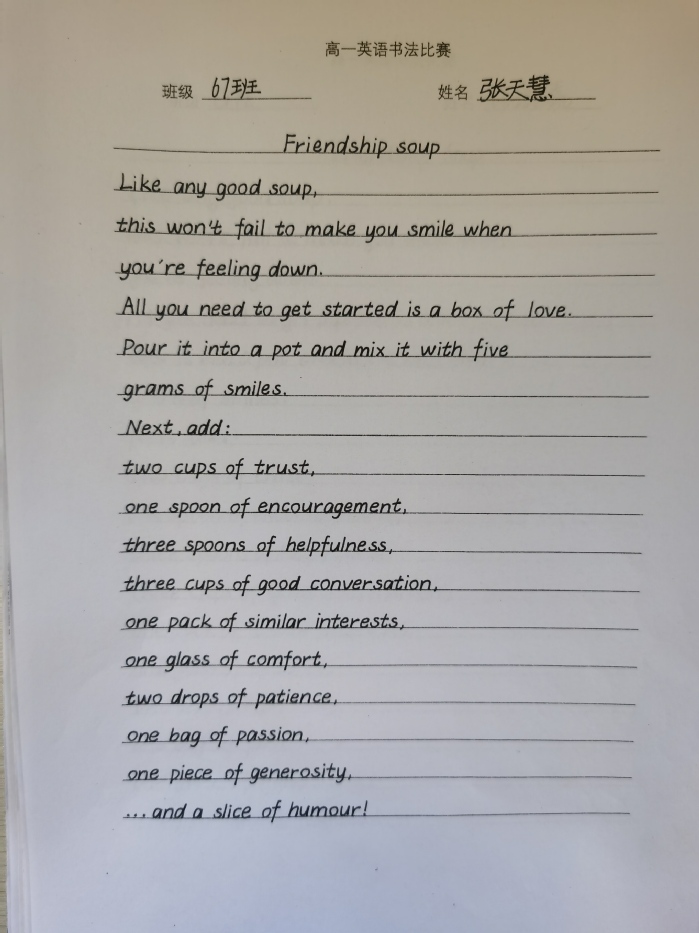 高一英语书法比赛
班级 67班 姓名 张天慧
Friendship soup
Like any good soup,
this won't fail to make you smile when
you're feeling down.
All you need to get started is a box of love.
Pour it into a pot and mix it with five
grams of smiles.
Next, add:
two cups of trust,
one spoon of encouragement,
three spoons of helpfulness,
three cups of good conversation,
one pack of similar interests,
one glass of comfort,
two drops of patience,
one bag of passion,
one piece of generosity,
...and a slice of humour!